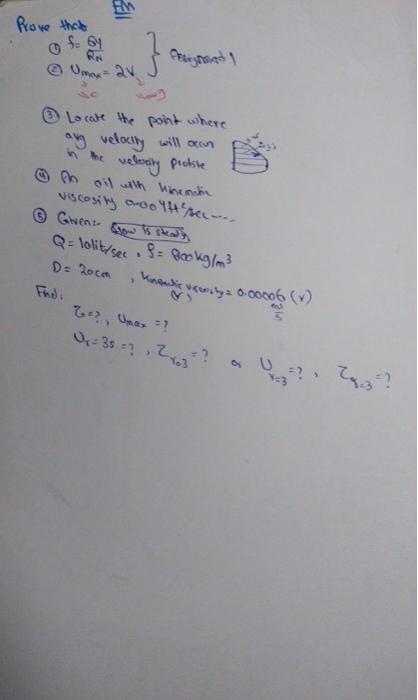 FM
Prove that
① f = 64
RN
② Umax = 2V
Assignment 1
③ Locate the point where
avg velocity will occur
in the velocity profile
④ An oil with kinematic
viscosity 0.004 ft²/sec ----
⑤ Given:- flow is steady
Q = 10 lit/sec , ρ = 800 kg/m³
D = 20 cm , kinematic viscosity = 0.00006 (ν)
Find:
τo = ? , Umax = ?
Ur=3 = ? , τr=3 = ? or Ur=3 = ? , τr=3 = ?